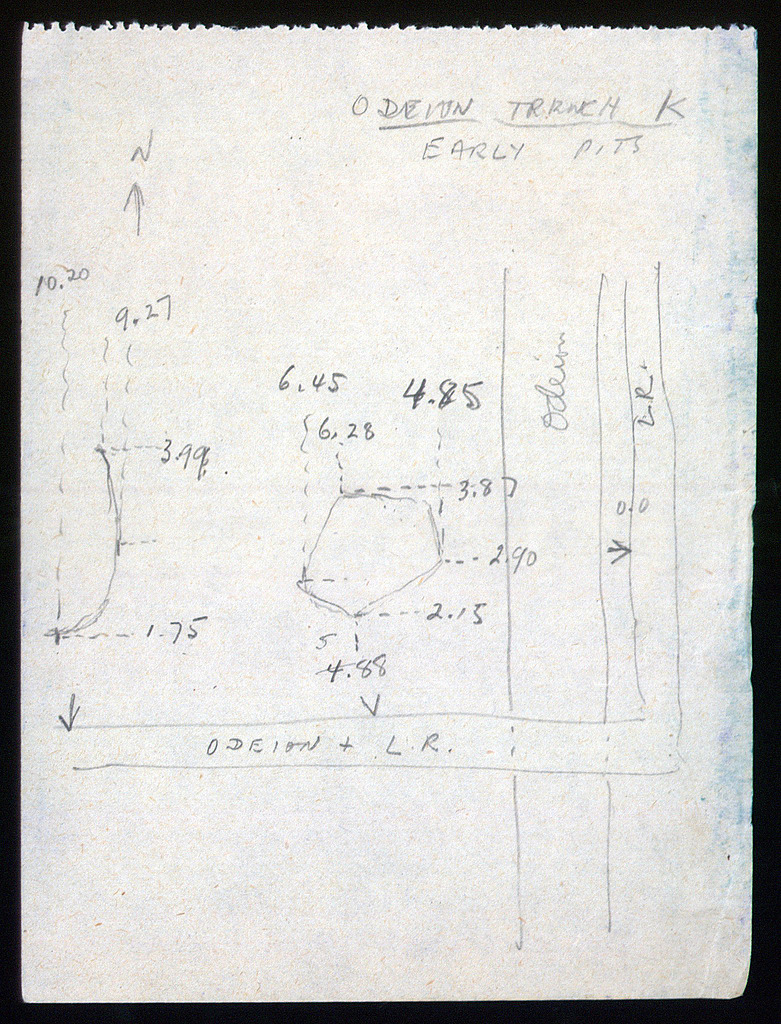 ODEION TRENCH K
EARLY PITS
N
10.20
9.27
6.45
4.85
6.28
3.99
3.87
Odeion
L.R.
0.0
2.90
2.15
1.75
5
4.88
ODEION + L.R.